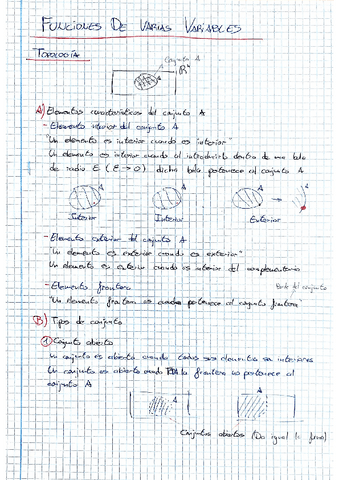 FUNCIONES DE VARIAS VARIABLES
TOPOLOGÍA
Conjunto A
A) Elementos característicos del conjunto A
- Elemento interior del conjunto A
"Un elemento es interior cuando es interior"
Un elemento es interior cuando al introducirlo dentro de una bola
de radio E (E→0) dicha bola pertenece al conjunto A
A A A
Interior Interior Exterior
- Elemento exterior del conjunto A
"Un elemento es exterior cuando es exterior"
Un elemento es exterior cuando es interior del complementario
- Elemento frontera
"Un elemento frontera es cuando pertenece al conjunto frontera"
B) Tipos de conjunto
1) Conjunto abierto
Un conjunto es abierto cuando todos sus elementos son interiores
Un conjunto es abierto cuando la frontera no pertenece al
conjunto A
A A
Conjuntos abiertos (Da igual la forma)